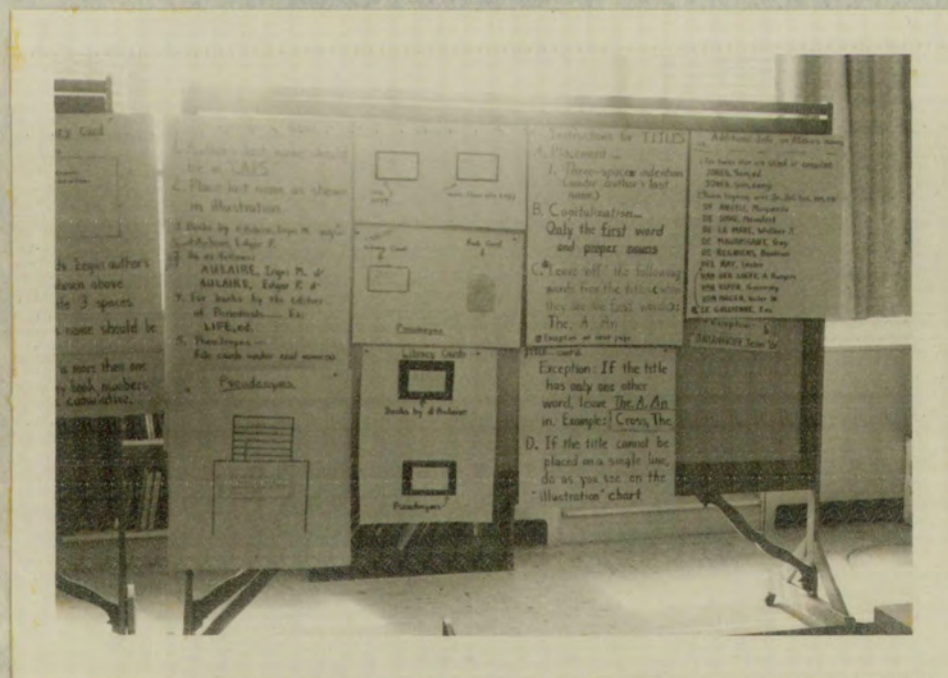 Card
author's
shown above
3 spaces
name should be
more than one
book numbers
1. Author's last name should
be in CAPS
2. Place last name as shown
in illustration.
as follows:
AULAIRE, Ingri M. d'
AULAIRE, Edgar P. d'
4. For books by the editors
of Periodicals Ex:
LIFE, ed.
5. Pseudonyms —
File cards under real names
Pseudonyms
Library Card
Book Card
Pseudonyms
Library Cards
Books by d'Aulaire
Pseudonyms
Instructions for TITLES
A. Placement —
1. Three-spaces indention
(under author's last
name)
B. Capitalization —
Only the first word
and proper nouns
C. Leave "off" the following
words from the titles (when
they are the first words):
The, A, An
Exception on next page
Exception: If the title
has only one other
word, leave The, A, An
in. Example: Cross, The
D. If the title cannot be
placed on a single line,
do as you see on the
"illustration" chart
Additional Info. on Author's Names
JONES, Sam, ed.
JONES, Sam, comp.
DE ANGELI, Marguerite
DE LA MARE, Walter J.
DE MAUPASSANT, Guy
DE REGNIERS, Beatrice
DEL REY, Lester
LE GALLIENNE, Eva
Exception